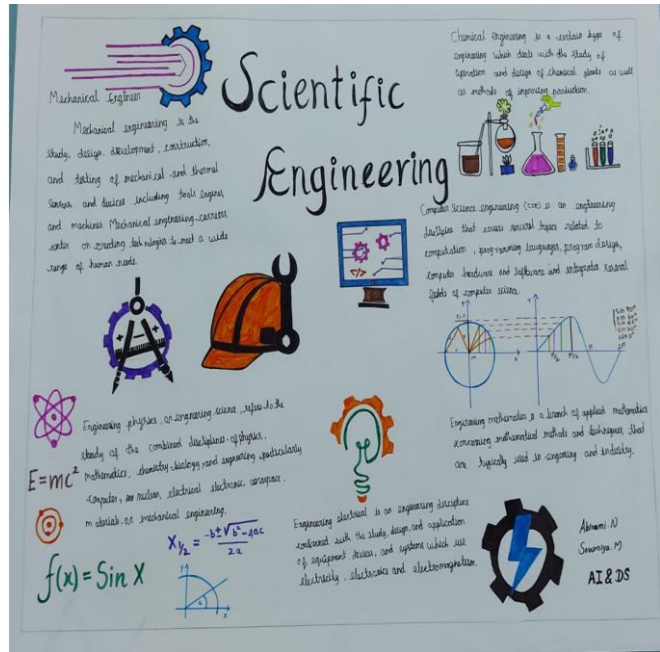 Scientific
Engineering
Mechanical Engineer
Mechanical engineering is the
study, design, development, construction,
and testing of mechanical and thermal
sensors and devices including tools engines,
and machines. Mechanical engineering careers
center on creating technologies to meet a wide
range of human needs.
Chemical engineering is a certain type of
engineering which deals with the study of
operation and design of chemical plants as well
as methods of improving production.
Computer Science engineering (CSE) is an engineering
discipline that covers several topics related to
computation, programming languages, program design,
computer hardware and software and integrates several
fields of computer science.
</>
Engineering physics, or engineering science, refers to the
study of the combined disciplines of physics,
mathematics, chemistry, biology, and engineering, particularly
computer, nuclear, electrical electronic, aerospace,
materials or mechanical engineering.
E=mc²
f(x)=Sin X
X1/2 = -b±√b²-4ac
2a
Engineering mathematics is a branch of applied mathematics
concerning mathematical methods and techniques that
are typically used in engineering and industry.
Engineering electrical is an engineering discipline
concerned with the study, design, and application
of equipment devices, and systems which use
electricity, electronics and electromagnetism.
Abinami. N
Sowmiya. M
AI & DS